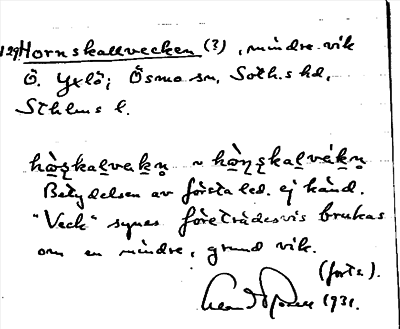 129. Hornskallvecken (3), mindre vik
Ö. Yxlö; Ösmo sn, Soth.s hd,
Sthlms l.
~
Betydelsen av första led. ej känd.
"Veck" synes företrädesvis brukas
om en mindre, grund vik.
(forts).
1931.